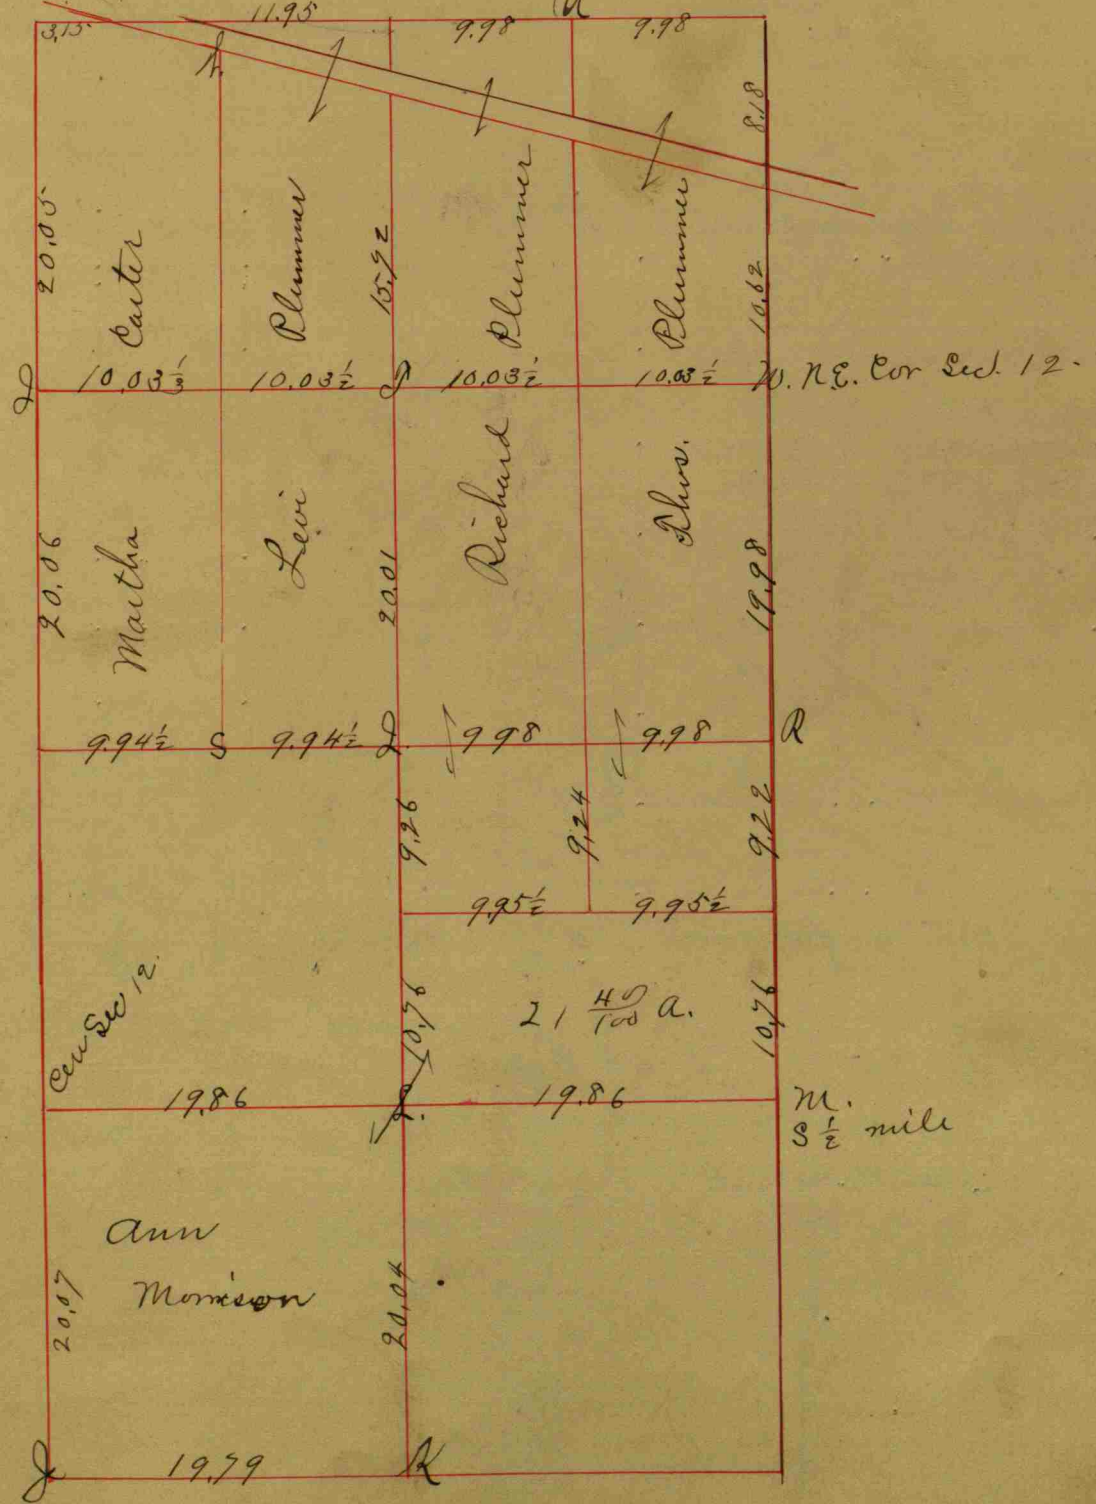 U
3,15
11.95
9.98
9.98
h
8.18
20.05
Carter
Plummer
15.92
Plummer
Plummer
10.62
10.03 1/3
10.03 1/2
10.03 1/2
10.03 1/2
W. N.E. Cor Sec. 12.
20.06
Martha
Levi
20.01
Richard
Thos.
19.98
9.94 1/2
S
9.94 1/2
Q
9 98
9.98
R
9.26
9.24
9.22
9.95 1/2
9.95 1/2
Cen Sec 12
10.76
21 40/100 a.
10.76
19.86
L.
19.86
M.
S 1/2 mile
Ann
Morrison
20.07
20.04
J
19.79
K